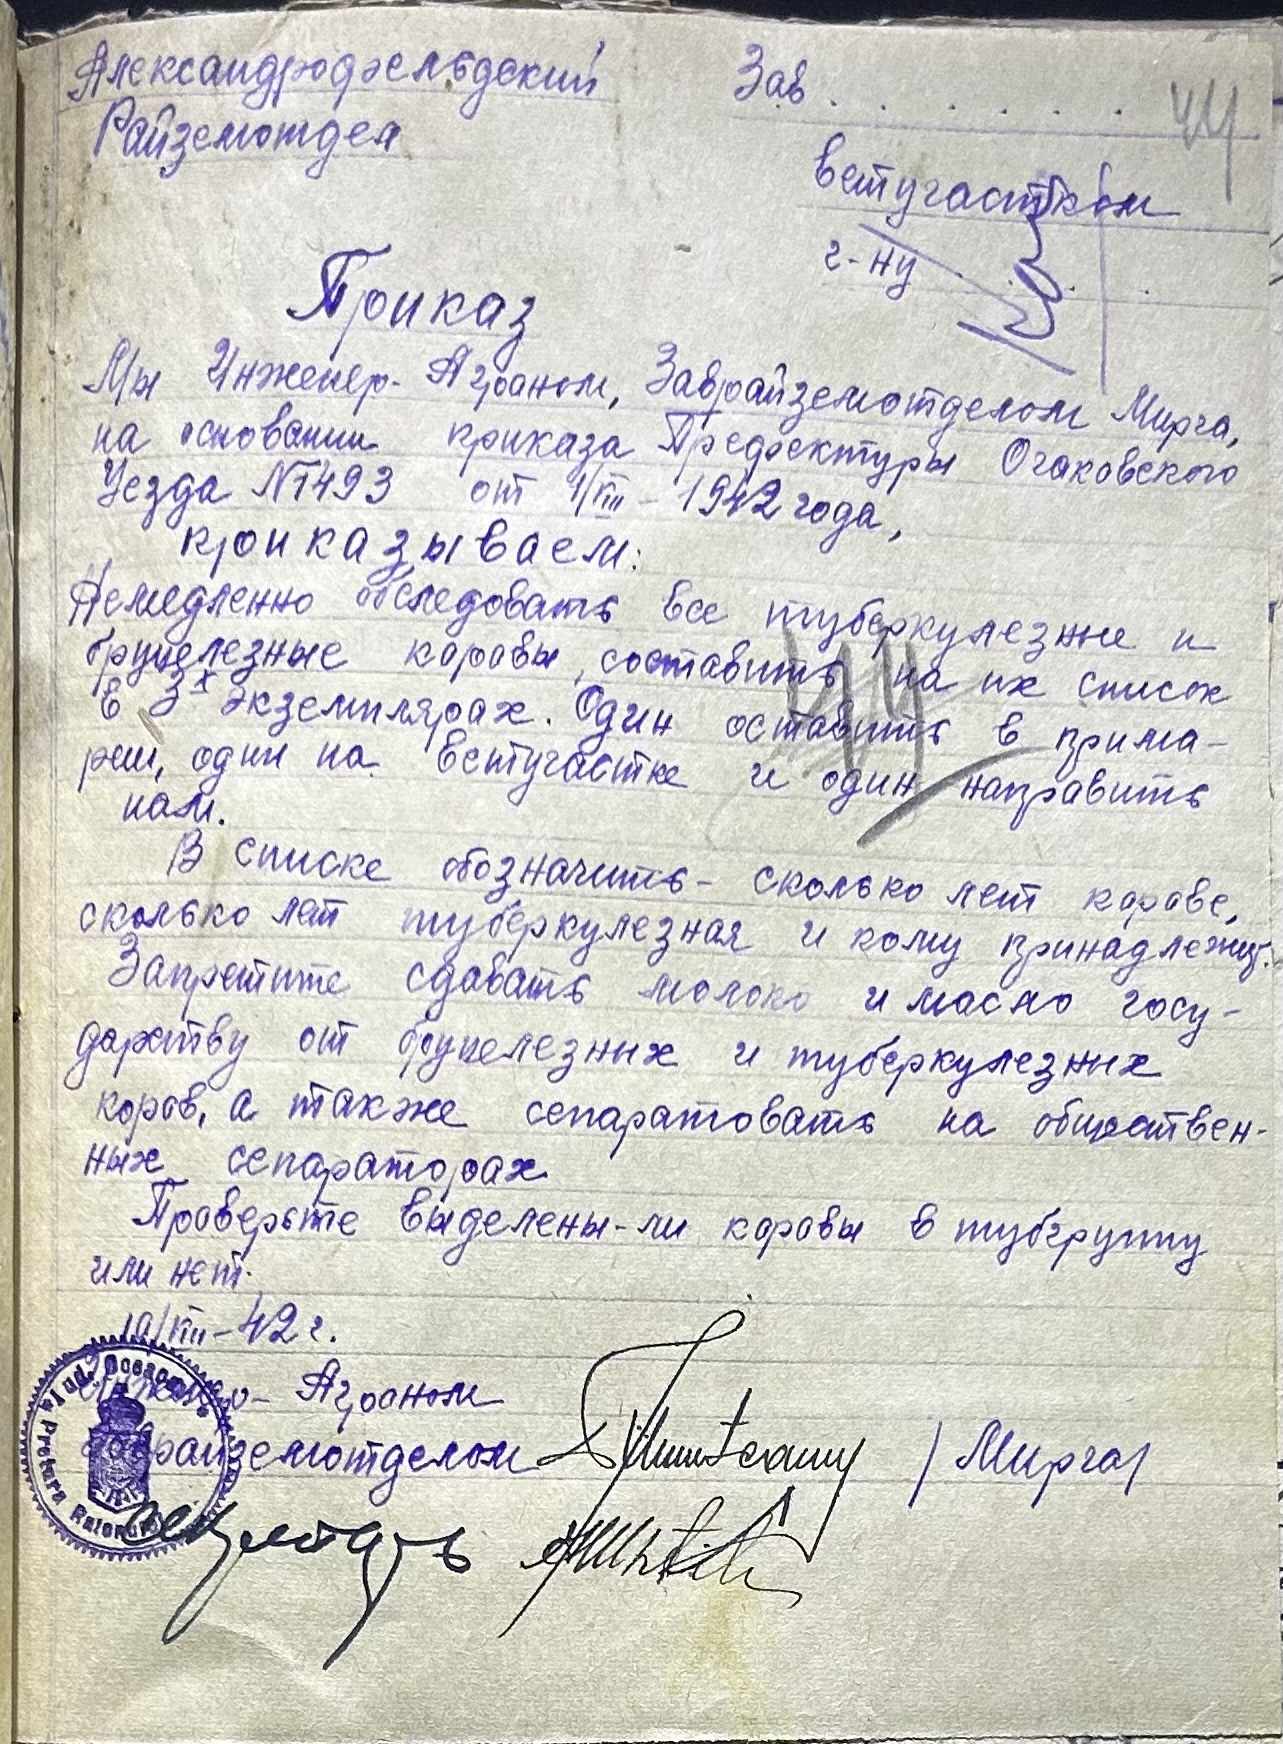 Александрофельдский
Райземотдел
Зав. . . . . . .
44
ветучастком
г-ну . . . .
Приказ
Мы Инженер-Аграном, Заврайземотделом Мирча,
на основании приказа Префектуры Очаковского
Уезда №7493 от 1/VIII-1942 года,
приказываем:
Немедленно обследовать все туберкулезные и
бруцелезные коровы, составить на их список
в 3х экземплярах. Один оставить в прима-
рии, один на ветучастке и один направить
нам.
В списке обозначить - сколько лет корове,
сколько лет туберкулезная и кому принадлежит.
Запретите сдавать молоко и масло госу-
дарству от бруцелезных и туберкулезных
коров, а также сепаратовать на обществен-
ных сепараторах
Проверьте выделены-ли коровы в тубгруппу
или нет.
10/VIII-42 г.
Инженер-Аграном
Заврайземотделом /Мирча/
Секретарь
Jud. Oceacov * Pretura Raionului